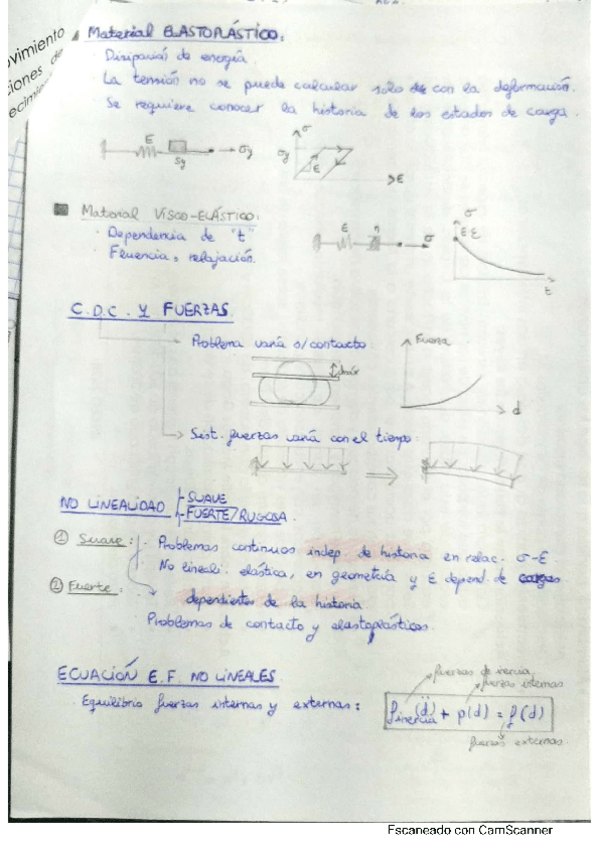 ovimiento
iones de
ecimie
Material ELASTOPLÁSTICO:
· Disipación de energía
La tensión no se puede calcular solo con la deformación.
Se requiere conocer la historia de los estados de carga.
E
Sy
σy
σ
σy
E
ε
Material VISCO-ELÁSTICO:
· Dependencia de "t"
Fluencia, relajación.
E
η
σ
σ
E ε
t
C.D.C. Y FUERZAS
Problema varía s/contacto
Fuerza
d
Sist. fuerzas varía con el tiempo
NO LINEALIDAD
SUAVE
FUERTE/RUGOSA.
① Suave: · Problemas continuos indep. de historia en relac. σ-ε.
· No lineali. elástica, en geometría y ε depend. de cargas
② Fuerte: dependientes de la historia
Problemas de contacto y elastoplásticos.
ECUACIÓN E.F. NO LINEALES
· Equilibrio fuerzas internas y externas:
fuerzas de inercia
fuerzas internas
f inercia (d̈) + p(d) = f(d)
fuerzas externas
Escaneado con CamScanner